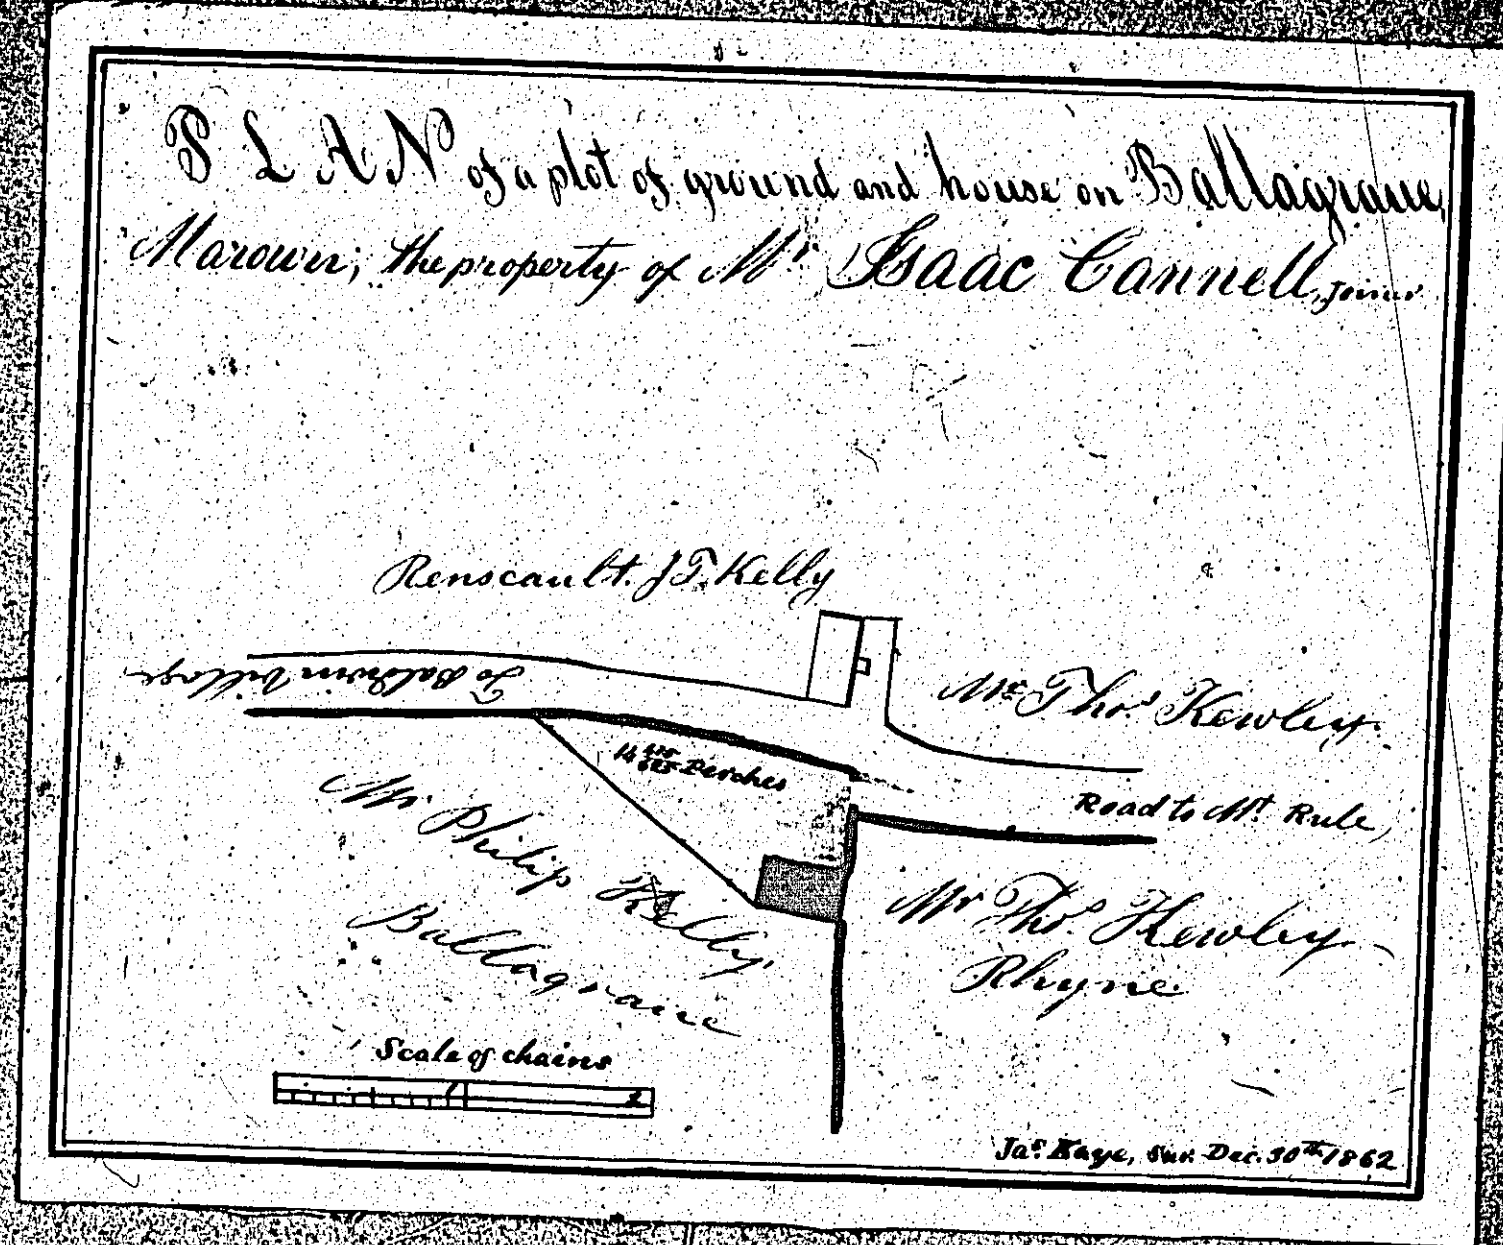 PLAN of a plot of ground and house on Ballagraue,
Marown; the property of Mr Isaac Cannell, Joiner
Renscault. J T. Kelly
To Baldwin Village
Mr. Thos. Kewley.
14 Perches
Road to Mt. Rule,
Mr. Philip Kelly,
Ballagraue
Mr Thos. Kewley
Rhyne
Scale of chains
1 2
Jas. Kaye, Sur. Dec. 30th 1862